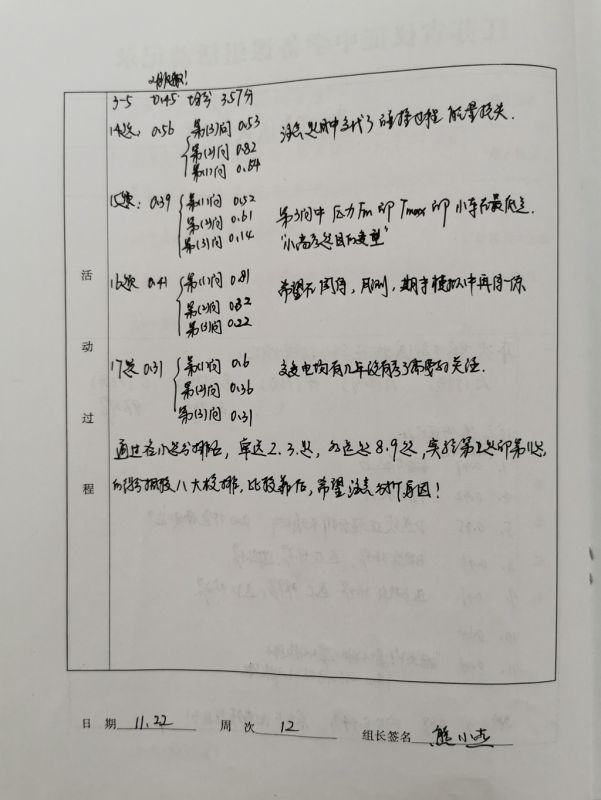 3-5 0.45 均分 3.57分
14题: 0.56 第(3)问 0.53
第(2)问 0.82
第(1)问 0.64
注意题目中交代了碰撞过程 能量损失.
15题: 0.39 第(1)问 0.52
第(2)问 0.61
第(3)问 0.14
第3问中 压力Fm 即 Tmax 即 小车在最低点.
"小高考题目的变型"
16题 0.41 第(1)问 0.81
第(2)问 0.32
第(3)问 0.22
希望在周练, 期末模拟中再练一练
17题 0.31 第(1)问 0.6
第(2)问 0.36
第(3)问 0.31
交变电 有几年没有考了 需要的关注.
通过各小题分排名, 单选2.3.题, 多选题8.9题, 实验第2题即第11题
的得分 八大校排, 比较靠后, 希望注意分析原因!
活
动
过
程
日 期 11.22 周 次 12 组长签名 熊小杰